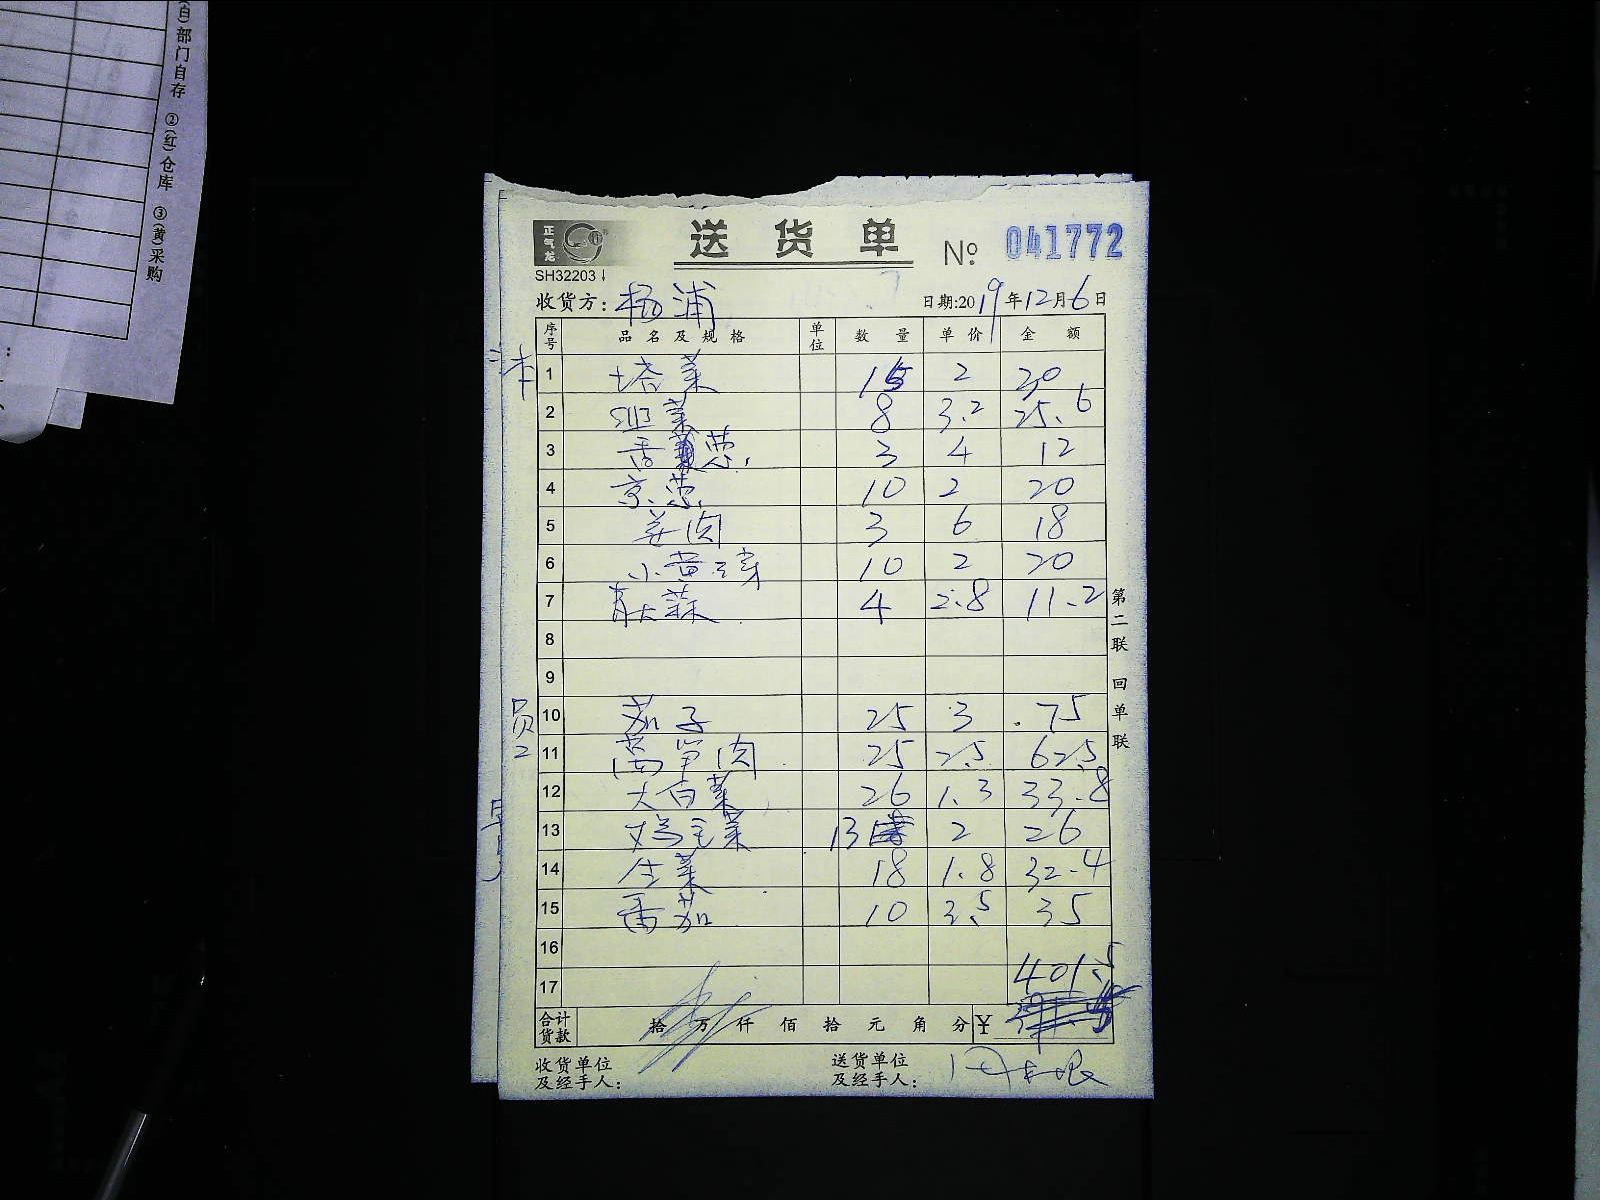 (白)部门自存 ②(红)仓库 ③(黄)采购
正气龙
送货单 № 041772
SH32203
收货方: 杨浦 日期:2019年12月6日
序号 品名及规格 单位 数量 单价 金额
1 塔菜 15 2 20
2 3.2 25.6
2 8
3 香葱 3 4 12
4 京葱 10 2 20
5 姜肉 3 6 18
6 小黄豆芽 10 2 20
7 青大蒜 4 2.8 11.2
8
9
10 茄子 25 3 75
11 莴笋肉 25 2.5 62.5
12 大白菜 26 1.3 33.8
13 鸡毛菜 13 2 26
14 生菜 18 1.8 32.4
15 番茄 10 3.5 35
16
17 401.5
合计货款 拾 万 仟 佰 拾 元 角 分 ¥
收货单位及经手人:
送货单位及经手人:
第二联 回单联
员工